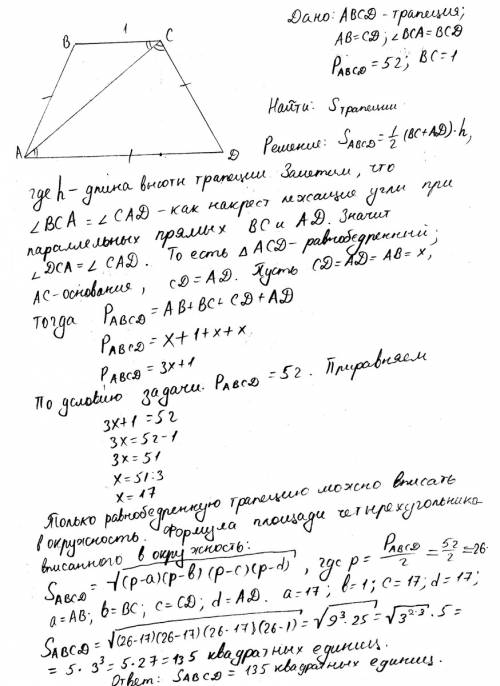 1
B
C
A
D
Дано: ABCD - трапеция;
AB=CD; ∠BCA=BCD
P_ABCD=52; BC=1
Найти: S трапеции
Решение: S_ABCD=1/2(BC+AD)·h,
где h - длина высоты трапеции. Заметим, что
∠BCA=∠CAD - как накрест лежащие углы при
параллельных прямых BC и AD. Значит
∠DCA=∠CAD. То есть △ACD - равнобедренный;
AC - основание, CD=AD. Пусть CD=AD=AB=x,
Тогда P_ABCD=AB+BC+CD+AD
P_ABCD=x+1+x+x
P_ABCD=3x+1
По условию задачи P_ABCD=52. Приравняем
3x+1=52
3x=52-1
3x=51
x=51:3
x=17
Только равнобедренную трапецию можно вписать
в окружность. Формула площади четырехугольника
вписанного в окружность:
S_ABCD=√(p-a)(p-b)(p-c)(p-d), где p=P_ABCD/2=52/2=26.
a=AB; b=BC; c=CD; d=AD. a=17; b=1; c=17; d=17;
S_ABCD=√(26-17)(26-17)(26-17)(26-1)=√9³·25=√3^2·3·5=
=5·3³=5·27=135 квадратных единиц.
Ответ: S_ABCD=135 квадратных единиц.